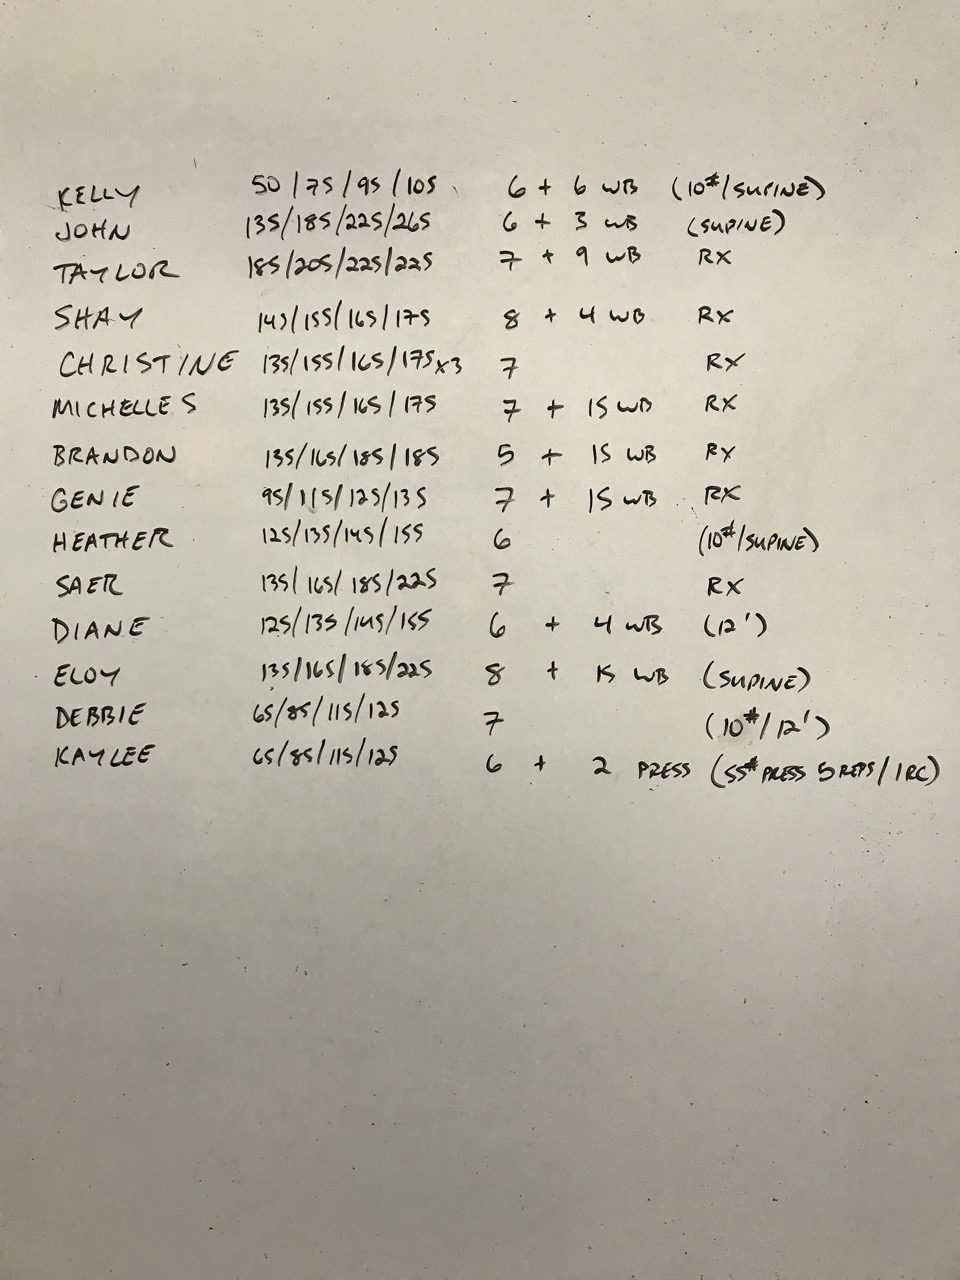 KELLY 50/75/95/105 6 + 6 WB (10#/SUPINE)
JOHN 135/185/225/265 6 + 3 WB (SUPINE)
TAYLOR 185/205/225/225 7 + 9 WB RX
SHAY 145/155/165/175 8 + 4 WB RX
CHRISTINE 135/155/165/175x3 7 RX
MICHELLE S 135/155/165/175 7 + 15 WB RX
BRANDON 135/165/185/185 5 + 15 WB RX
GENIE 95/115/125/135 7 + 15 WB RX
HEATHER 125/135/145/155 6 (10#/SUPINE)
SAER 135/165/185/225 7 RX
DIANE 125/135/145/155 6 + 4 WB (12')
ELOY 135/165/185/225 8 + 15 WB (SUPINE)
DEBBIE 65/85/115/125 7 (10#/12')
KAYLEE 65/85/115/125 6 + 2 PRESS (55# PRESS 5 REPS/1RC)